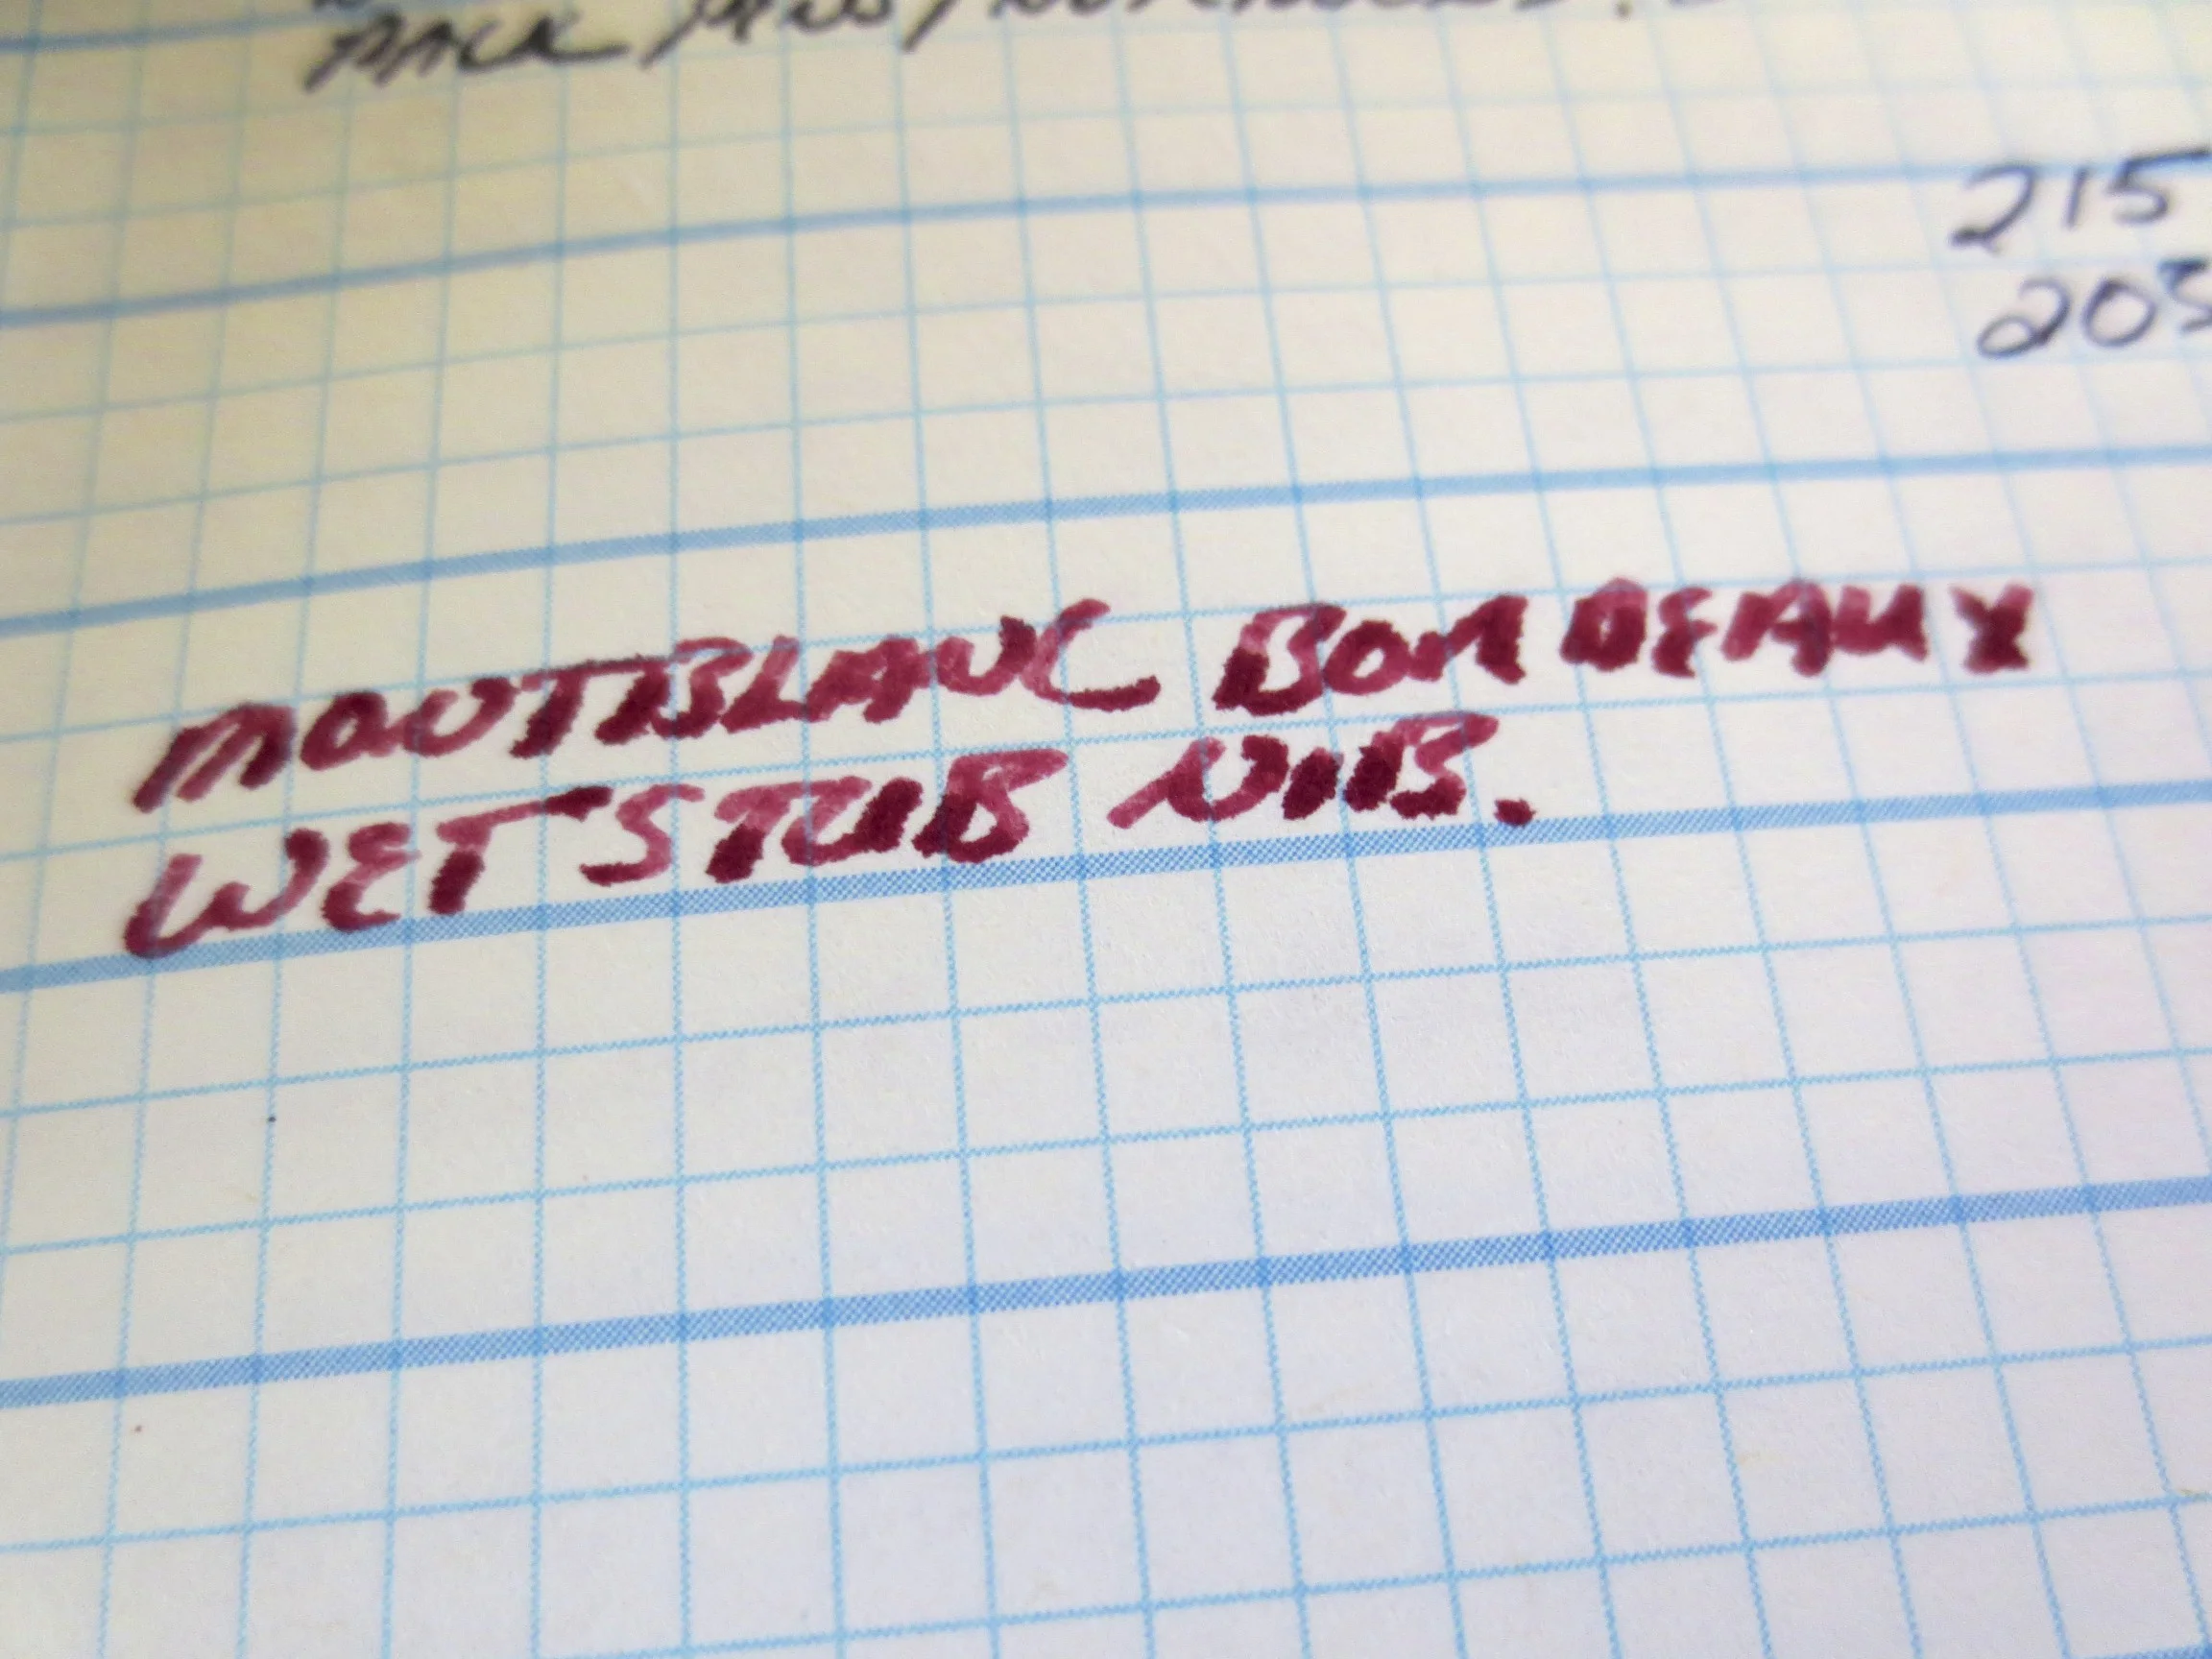 PACK
215
203
MONTBLANC BORDEAUX
WET STUB NIB.